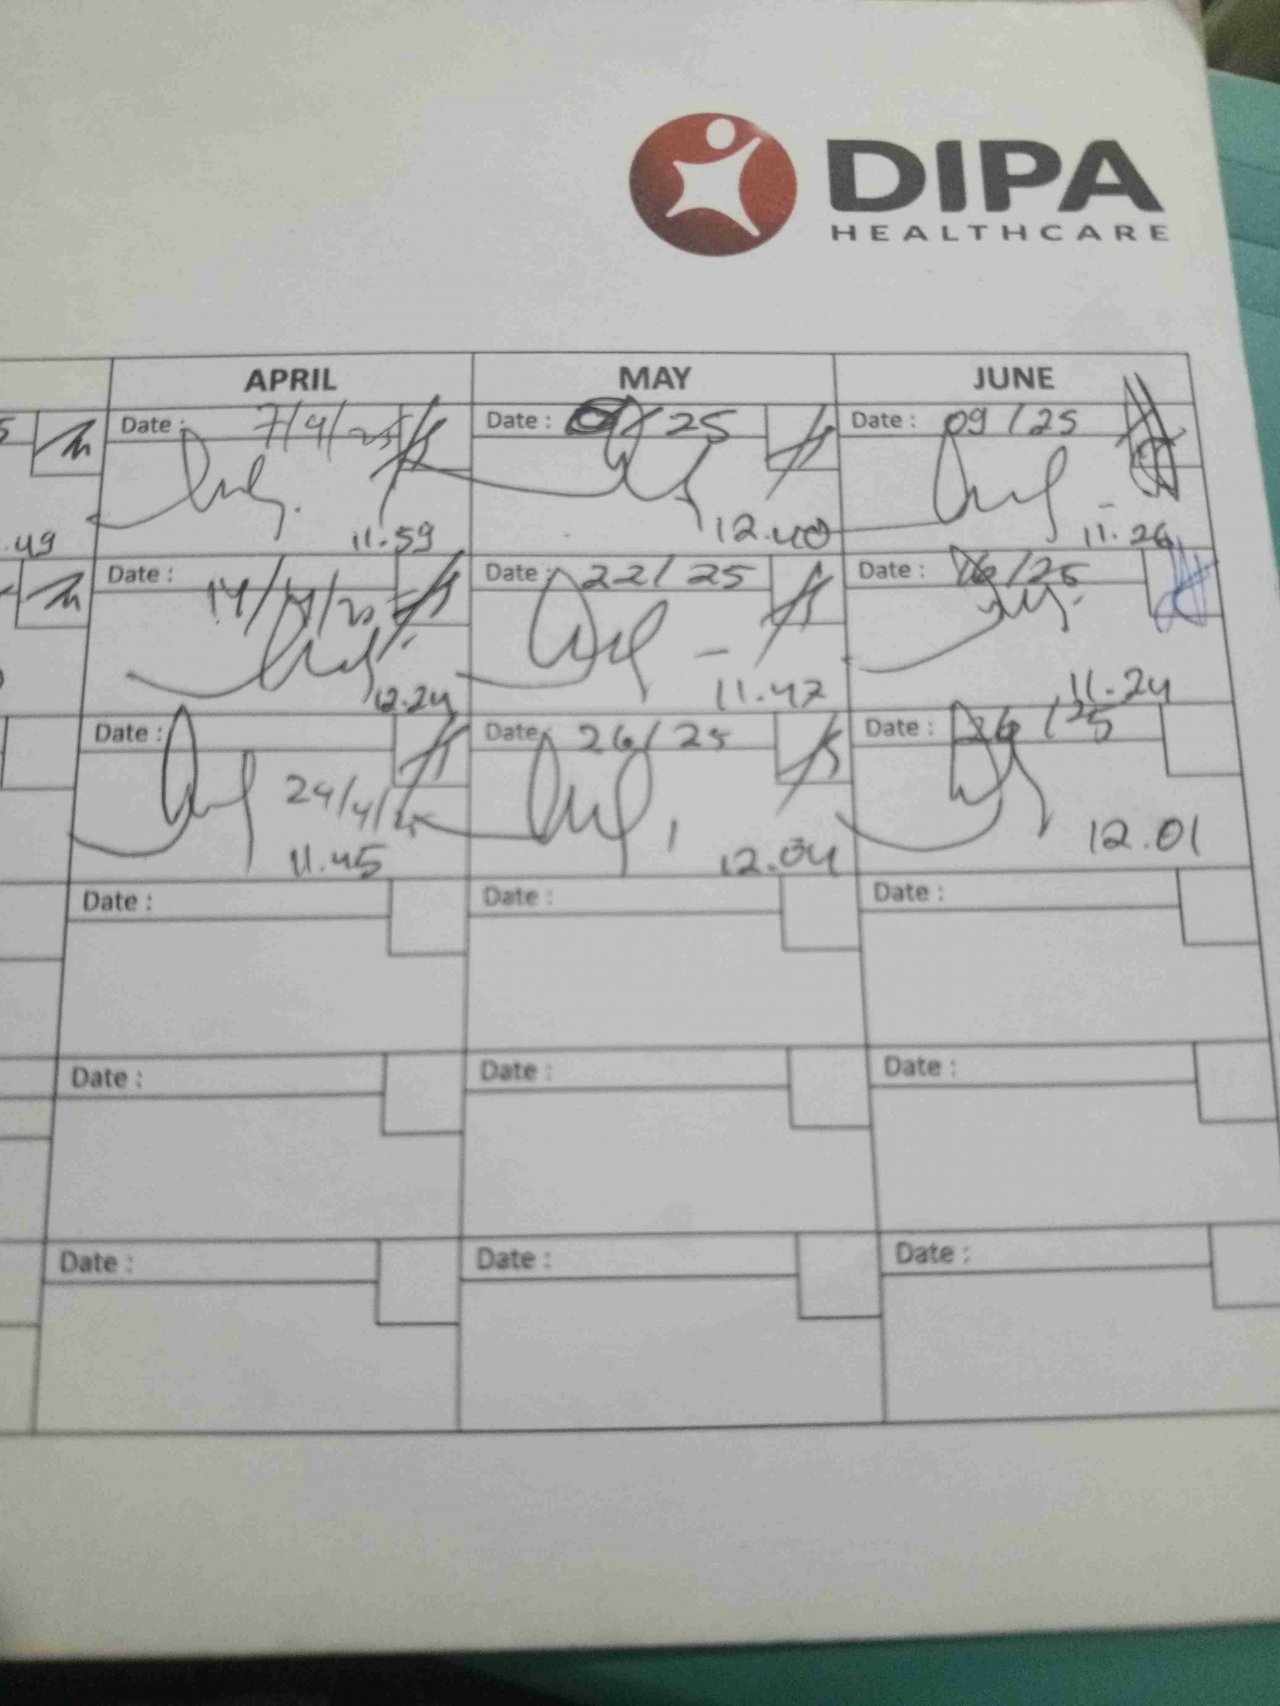 DIPA
HEALTHCARE
APRIL MAY JUNE
Date : 7/4/25 Date : /25 Date : 09/25
.49 11.59 12.40 11.26
Date : 14/4/25 Date : 22/25 Date : /25
12.24 11.47 11.24
Date : Date : 26/25 Date : 26/25
24/4/25
11.45 12.04 12.01
Date : Date : Date :
Date : Date : Date :
Date : Date : Date :